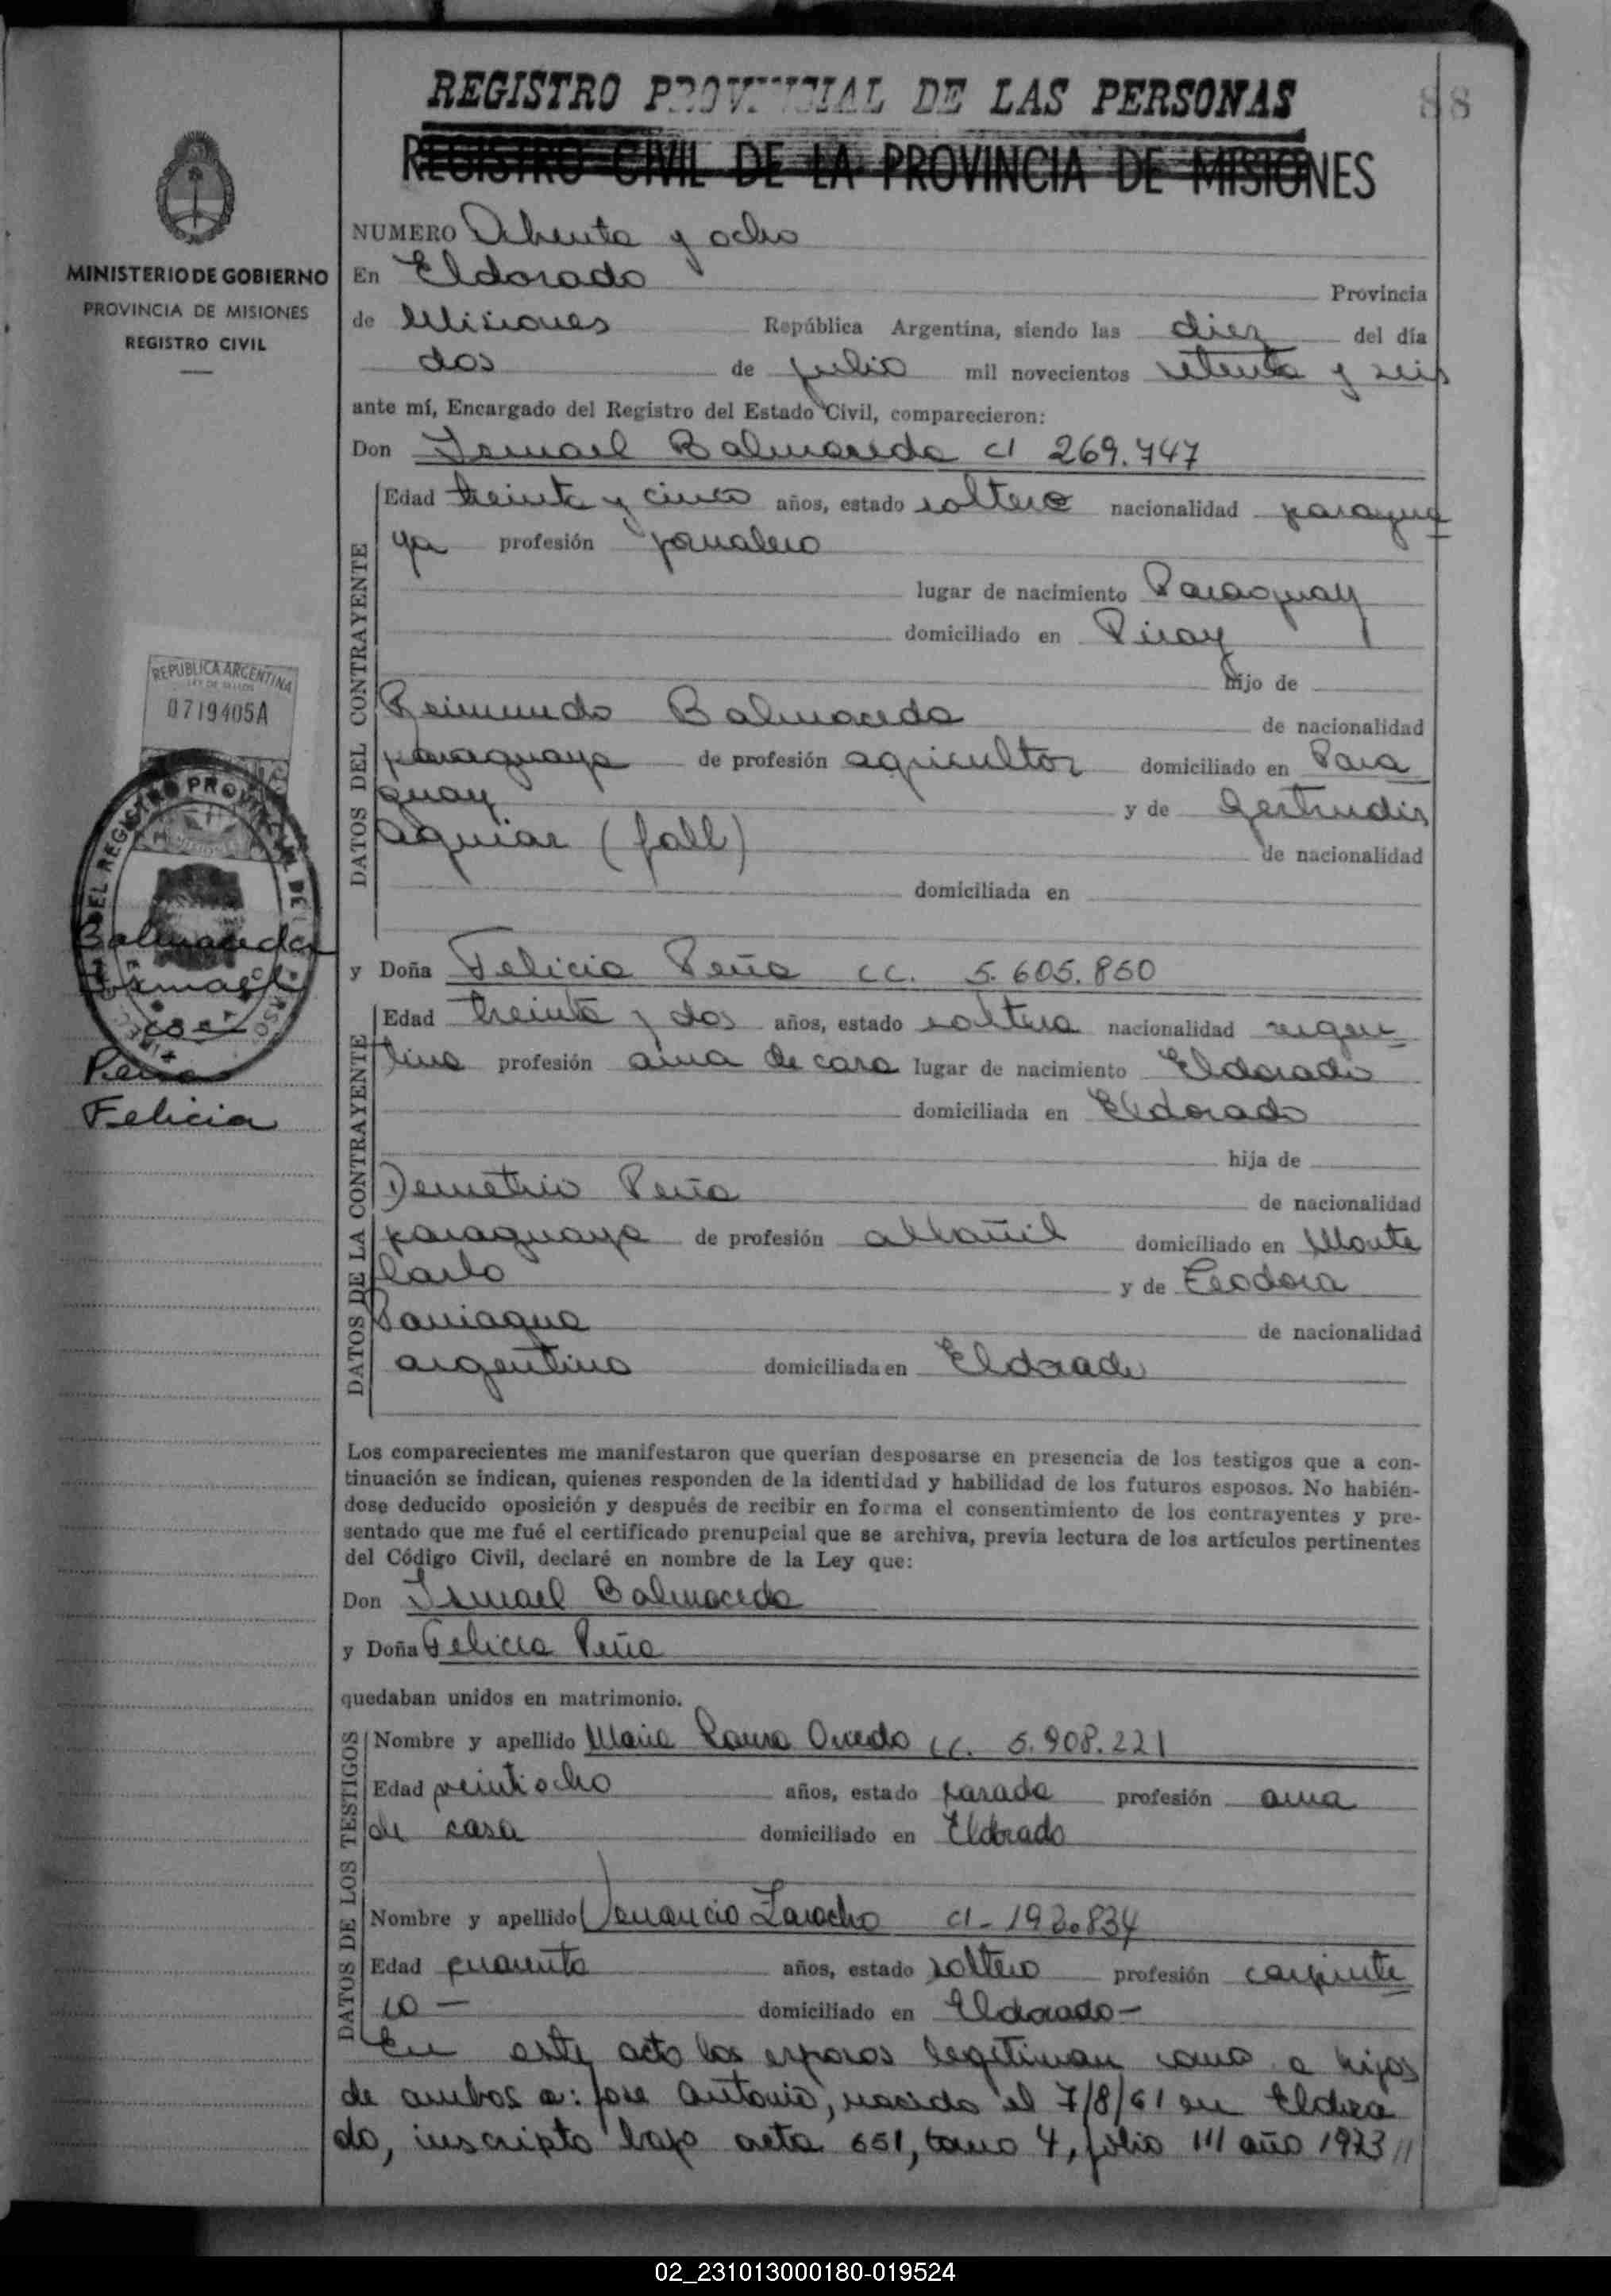 REGISTRO PROVINCIAL DE LAS PERSONAS
88
REGISTRO CIVIL DE LA PROVINCIA DE MISIONES
MINISTERIO DE GOBIERNO
PROVINCIA DE MISIONES
REGISTRO CIVIL
NUMERO Ochenta y ocho
En Eldorado Provincia
de Misiones República Argentina, siendo las diez del día
dos de julio mil novecientos setenta y seis
ante mí, Encargado del Registro del Estado Civil, comparecieron:
Don Ismael Balmaceda CI 269.747
DATOS DEL CONTRAYENTE
Edad treinta y cinco años, estado soltero nacionalidad paragua
ya profesión jornalero
lugar de nacimiento Paraguay
domiciliado en Piray
hijo de
Reimundo Balmaceda de nacionalidad
paraguaya de profesión agricultor domiciliado en Para
guay y de Gertrudis
Aguiar (fall) de nacionalidad
domiciliada en
REPUBLICA ARGENTINA
LEY DE SELLOS
0719405A
Balmaceda
Ismael
con
Peña
Felicia
y Doña Felicia Peña CC. 5.605.850
DATOS DE LA CONTRAYENTE
Edad treinta y dos años, estado soltera nacionalidad argen
tina profesión ama de casa lugar de nacimiento Eldorado
domiciliada en Eldorado
hija de
Demetrio Peña de nacionalidad
paraguaya de profesión albañil domiciliado en Monte
Carlo y de Teodora
Paniagua de nacionalidad
argentina domiciliada en Eldorado
Los comparecientes me manifestaron que querían desposarse en presencia de los testigos que a con-
tinuación se indican, quienes responden de la identidad y habilidad de los futuros esposos. No habién-
dose deducido oposición y después de recibir en forma el consentimiento de los contrayentes y pre-
sentado que me fué el certificado prenupcial que se archiva, previa lectura de los artículos pertinentes
del Código Civil, declaré en nombre de la Ley que:
Don Ismael Balmaceda
y Doña Felicia Peña
quedaban unidos en matrimonio.
DATOS DE LOS TESTIGOS
Nombre y apellido Maria Ovedo CC. 5.908.221
Edad veintiocho años, estado casada profesión ama
de casa domiciliado en Eldorado
Nombre y apellido Venancio CI-192.834
Edad cuarenta años, estado soltero profesión carpinte
ro - domiciliado en Eldorado-
En este acto los esposos legitiman como a hijos
de ambos a: Jose Antonio, nacido el 7/8/61 en Eldora
do, inscripto bajo acta 651, tomo 4, folio 111 año 1973 //
02_231013000180-019524